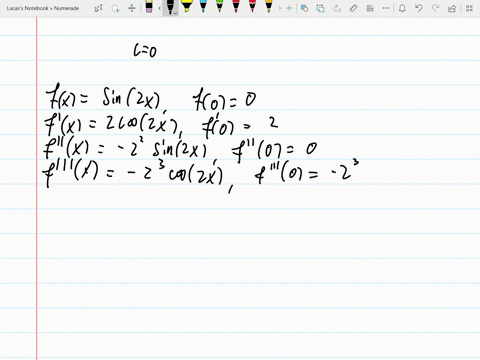 Lucas's Notebook » Numerade
c=0
f(x) = sin(2x), f(0) = 0
f'(x) = 2cos(2x), f'(0) = 2
f''(x) = -2² sin(2x), f''(0) = 0
f'''(x) = -2³ cos(2x), f'''(0) = -2³